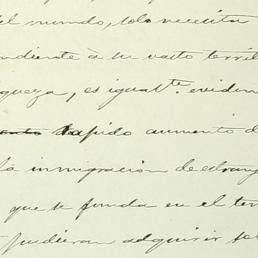 el mundo, solo necesita
ndiente à su vasto territ
queza, es igualte. eviden
rapido aumento d
la inmigracion de estrang
que se funda en el ter
pudieran adquirir